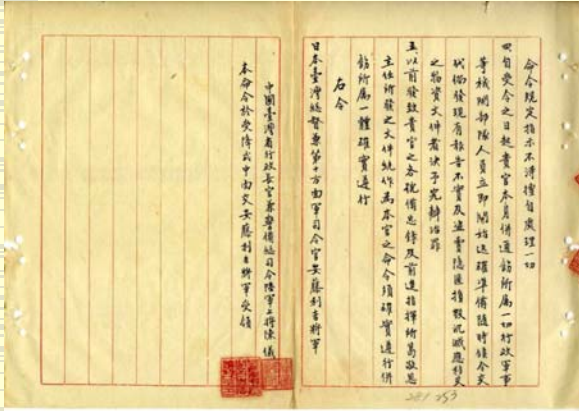 命令規定指示不得擅自處理一切
四、自受令之日起貴官本身併通飭所屬一切行政軍事
等機關部隊人員立即開始迅確準備隨時候令交
代倘發現有報告不實及盜賣隱匿損毀沉滅應移交
之物資文件者決予究辦治罪
五、以前發致貴官之各號備忘錄及前進指揮所葛敬恩
主任所發之文件統作為本官之命令須確實遵行併
飭所屬一體確實遵行
右令
日本臺灣總督兼第十方面軍司令官安藤利吉將軍
中國臺灣省行政長官兼警備總司令陸軍上將陳儀
本命令於受降式中面交安藤利吉將軍受領